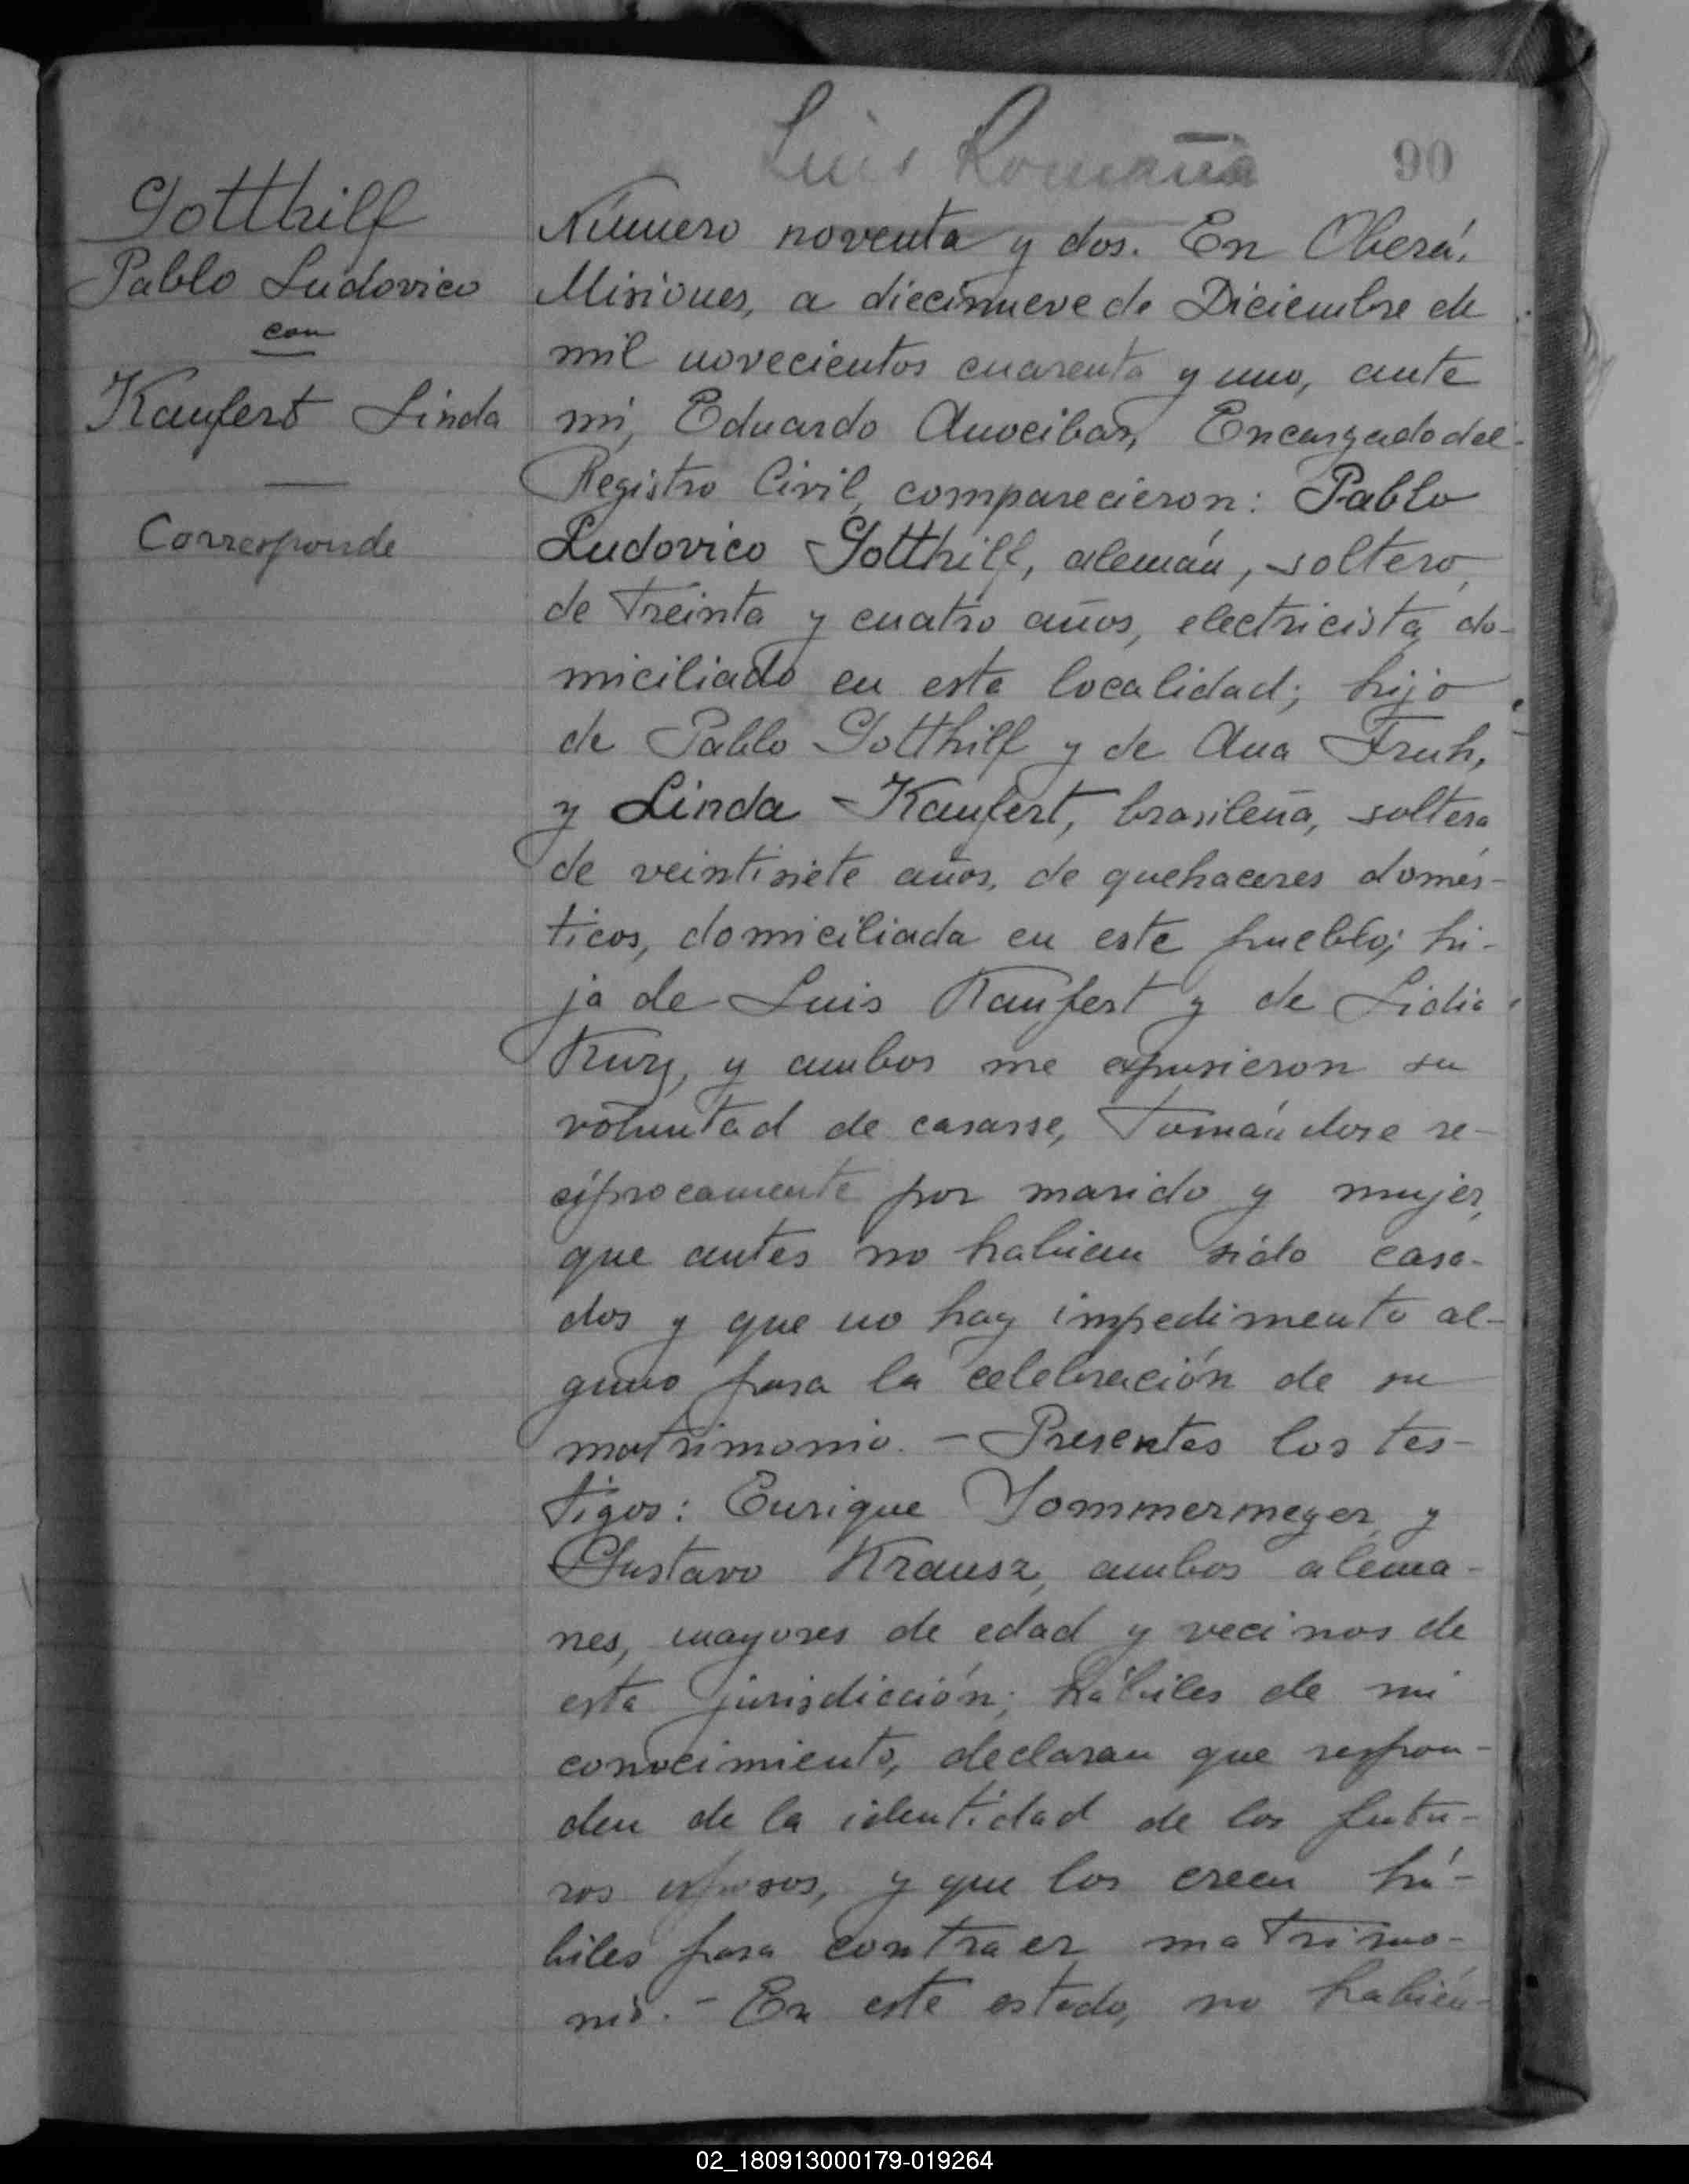 Luis Romaña
90
Gotthilf
Pablo Ludovico
con
Kaufert Linda
Corresponde
Número noventa y dos. En Oberá,
Misiones, a diecinueve de Diciembre de
mil novecientos cuarenta y uno, ante
mí, Eduardo Encargado del
Registro Civil, comparecieron: Pablo
Ludovico Gotthilf, alemán, soltero,
de treinta y cuatro años, electricista, do-
miciliado en esta localidad; hijo
de Pablo Gotthilf y de Ana Fruh,
y Linda Kaufert, brasileña, soltera
de veintisiete años, de quehaceres domés-
ticos, domiciliada en este pueblo; hi-
ja de Luis Kaufert y de Lidia
y ambos me expusieron su
voluntad de casarse, tomándose re-
cíprocamente por marido y mujer,
que antes no habian sido casa-
dos y que no hay impedimento al-
guno para la celebración de su
matrimonio. - Presentes los tes-
tigos: Enrique Sommermeyer y
Gustavo Krausz, ambos alema-
nes, mayores de edad y vecinos de
esta jurisdicción; hábiles de mi
conocimiento, declaran que respon-
den de la identidad de los futu-
ros esposos, y que los creen há-
biles para contraer matrimo-
nio. - En este estado, no habién-
02_180913000179-019264